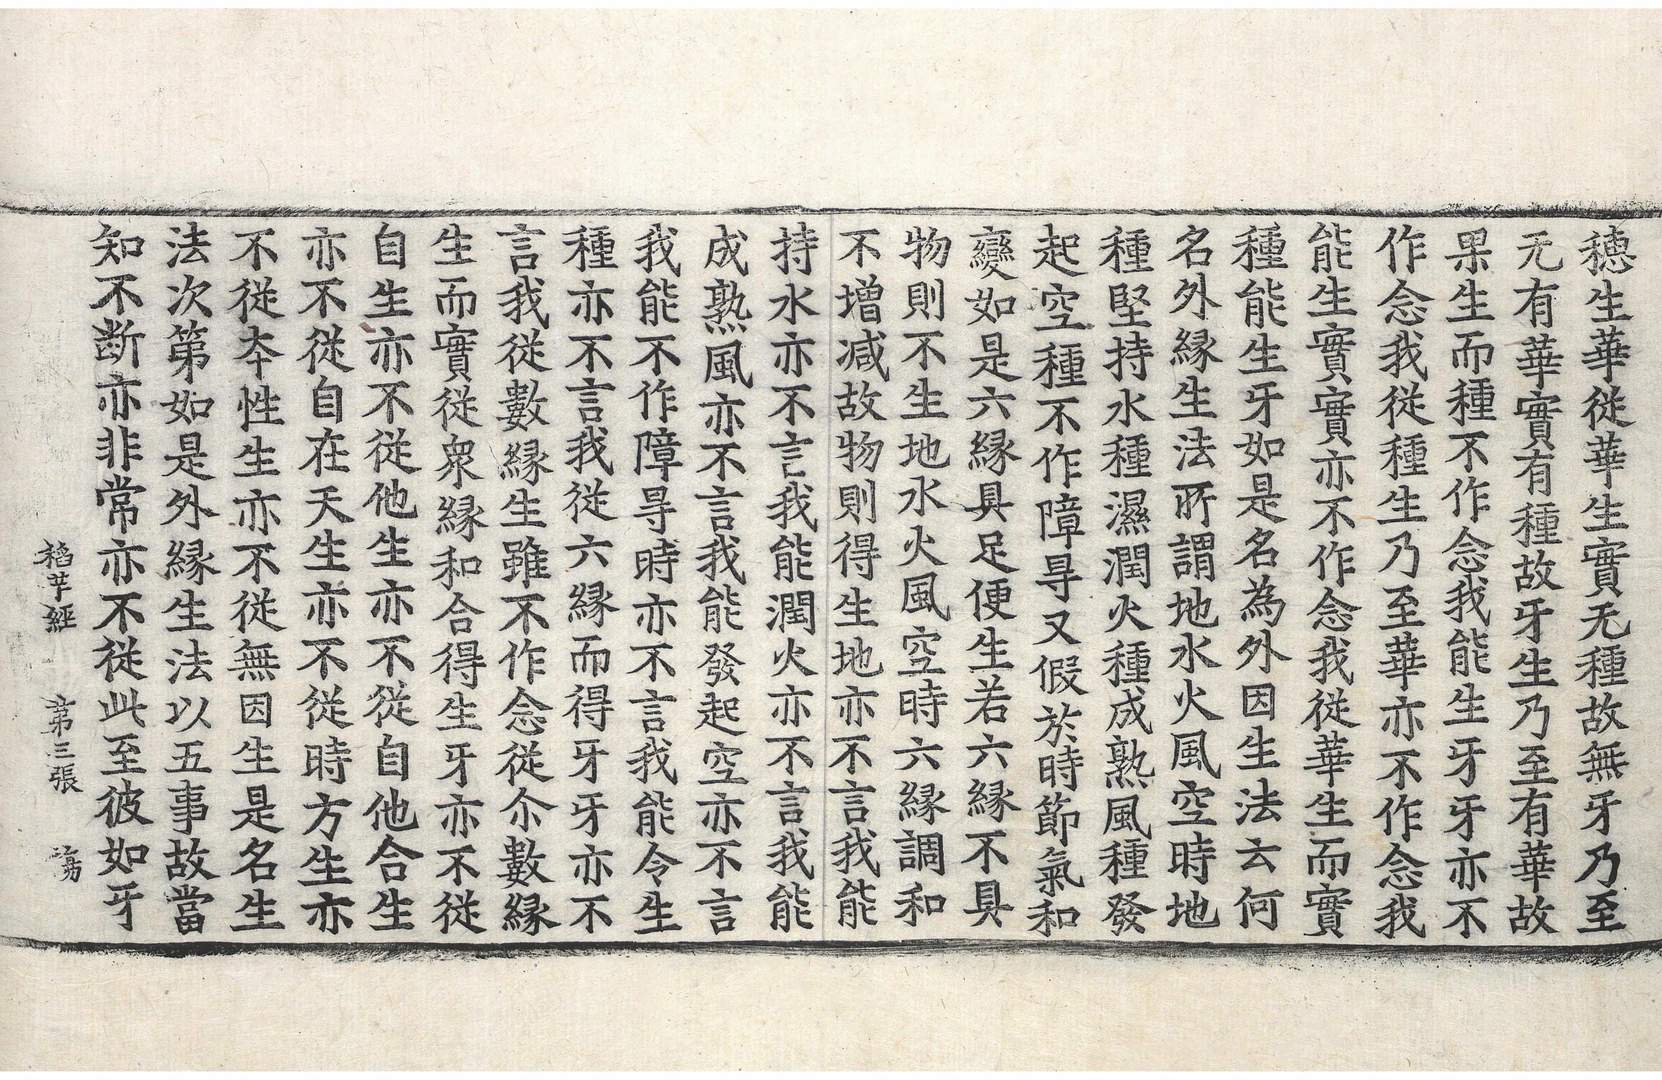 穗生華從華生實无種故無牙乃至
无有華實有種故牙生乃至有華故
果生而種不作念我能生牙牙亦不
作念我從種生乃至華亦不作念我
能生實實亦不作念我從華生而實
種能生牙如是名為外因生法云何
名外縁生法所謂地水火風空時地
種堅持水種濕潤火種成熟風種發
起空種不作障㝵又假於時節氣和
變如是六縁具足便生若六縁不具
物則不生地水火風空時六縁調和
不增减故物則得生地亦不言我能
持水亦不言我能潤火亦不言我能
成熟風亦不言我能發起空亦不言
我能不作障㝵時亦不言我能令生
種亦不言我從六縁而得牙牙亦不
言我從數縁生雖不作念從尒數縁
生而實從衆縁和合得生牙亦不從
自生亦不從他生亦不從自他合生
亦不從自在天生亦不從時方生亦
不從夲性生亦不從無因生是名生
法次第如是外縁生法以五事故當
知不断亦非常亦不從此至彼如牙
稻芉經 第三張